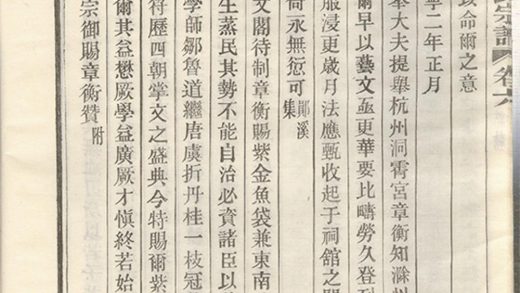 宗譜 卷六
命爾之意
寧二年正月
奉大夫提舉杭州洞霄宮章衡知滁州
爾早以藝文亟更華要比疇勞久登
服浸更歲月法應甄收起于祠館之
尚永無愆可鄖溪集
文閣待制章衡賜紫金魚袋兼東南
生蒸民其勢不能自治必資諸臣以
學師鄒魯道繼唐虞折丹桂一枝冠
符歷四朝掌文之盛典今特賜爾紫
爾其益懋厥學益廣厥才愼終若始
宗御賜章衡贊附